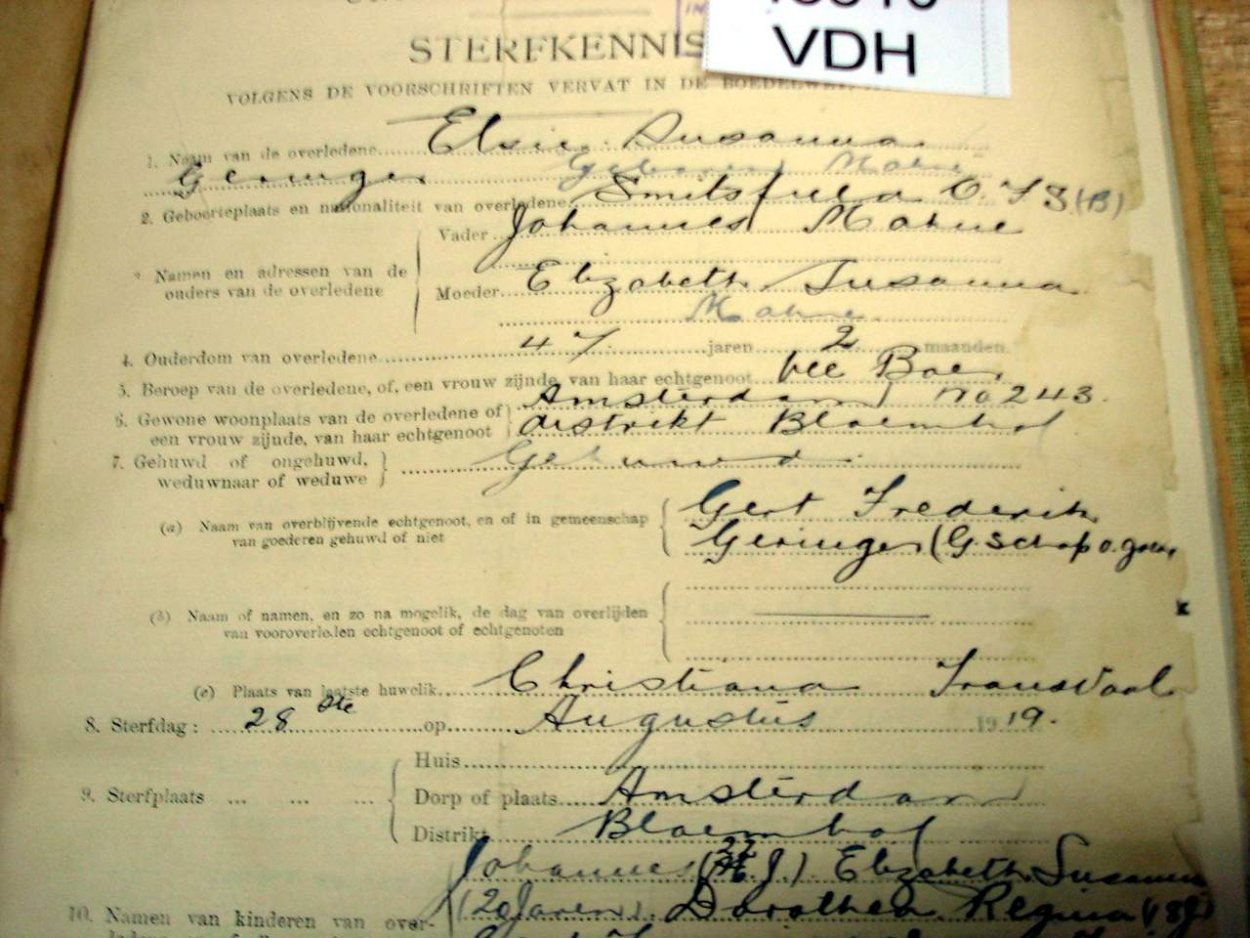 VDH
STERFKENNIS
VOLGENS DE VOORSCHRIFTEN VERVAT IN DE
1. Naam van de overledene Elsie Susanna
Geringer Geboren Mahne
2. Geboorteplaats en nationaliteit van overledene Smitsfield O.V.S (B)
Vader Johannes Mahne
Namen en adressen van de
ouders van de overledene
Moeder Elizabeth Susanna
Mahne
4. Ouderdom van overledene 47 jaren 2 maanden.
5. Beroep van de overledene, of, een vrouw zijnde, van haar echtgenoot Vee Boer
6. Gewone woonplaats van de overledene of Amsterdam no 243.
een vrouw zijnde, van haar echtgenoot distrikt Bloemhof
7. Gehuwd of ongehuwd, Gehuwd
weduwnaar of weduwe
(a) Naam van overblijvende echtgenoot, en of in gemeenschap Gert Frederik
van goederen gehuwd of niet Geringer (G.schap v.
(b) Naam of namen, en zo na mogelik, de dag van overlijden
van vooroverleden echtgenoot of echtgenoten
(c) Plaats van laatste huwelik Christiana Transvaal
8. Sterfdag: 28ste op Augustus 1919.
Huis
9. Sterfplaats ... ... ... Dorp of plaats Amsterdam
Distrikt Bloemhof
Johannes (22 J.) Elizabeth Susanna
10. Namen van kinderen van over- (20 Jaren) Dorothea Regina (18J)